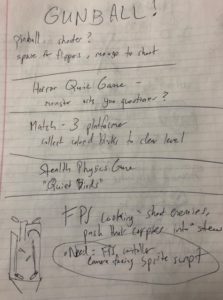 GUNBALL!
pinball shooter?
space for flippers, mouse to shoot
Horror Quiz Game -
monster asks you questions?
Match-3 platformer
collect colored blocks to clear level
Stealth Physics Game
"Quiet Birds"
FPS Cooking - shoot enemies,
push their corpses into stew
Need - FPS controller
Camera facing Sprite script